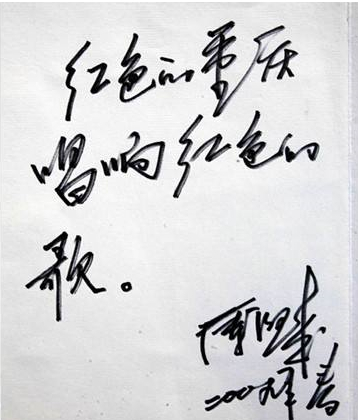 红色的重庆
唱响红色的
歌。
二〇〇九年春